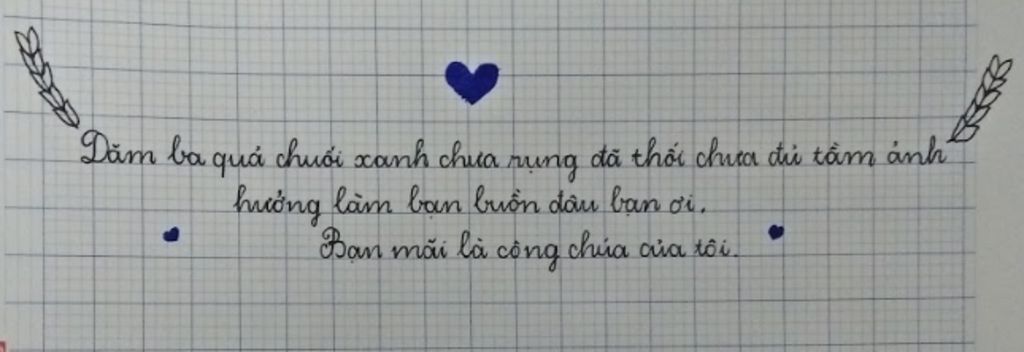 Dăm ba quả chuối xanh chưa rụng đã thối chưa đủ tầm ảnh
hưởng làm bạn buồn đâu bạn ơi.
Bạn mãi là công chúa của tôi.